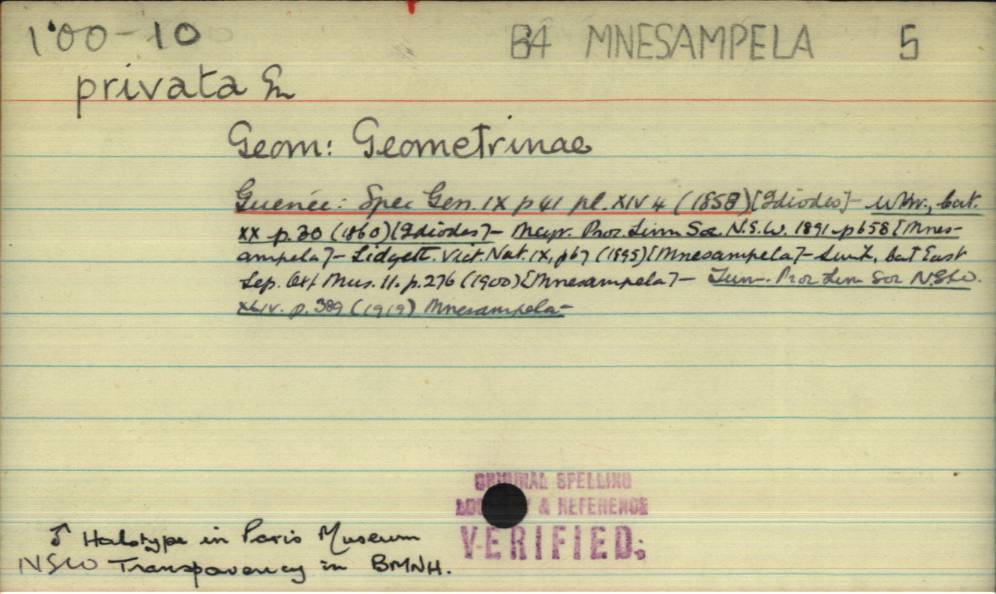 1'00-10 B4 MNESAMPELA 5
privata Gn
Geom: Geometrinae
Guenée: Spec Gen. IX p 41 pl. XIV 4 (1858) [Idiodes] - Wkr., Cat.
XX p. 30 (1860) [Idiodes] - Meyr. Proc Linn Soc. N.S.W. 1891 p 658 [Mnes-
ampela] - Lidgett. Vict. Nat. IX, p67 (1895) [Mnesampela] - Swh, Cat East
Lep. Oxf Mus. 11. p. 276 (1900) [Mnesampela] - Turn. Proc Linn Soc N.S.W.
XLIV. p. 389 (1919) Mnesampela -
ORIGINAL SPELLING
& REFERENCE
VERIFIED:
♂ Holotype in Paris Museum
NSW Transparency in BMNH.